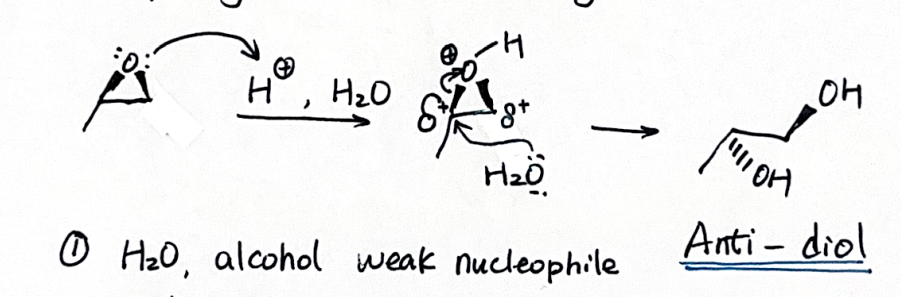 :O: H⊕, H₂O ⊕O–H δ+ δ+ H₂Ö OH OH
① H₂O, alcohol weak nucleophile Anti - diol